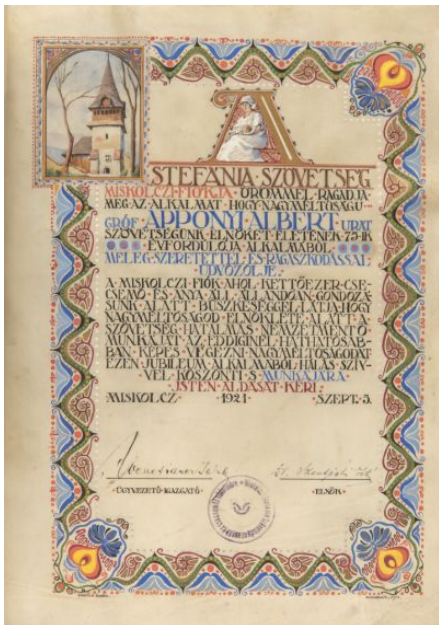 A
STEFÁNIA SZÖVETSÉG
MISKOLCZI FIÓKJA ÖRÖMMEL RAGADJA
MEG AZ ALKALMAT HOGY NAGYMÉLTÓSÁGU
GRÓF APPONYI ALBERT URAT
SZÖVETSÉGÜNK ELNÖKÉT ÉLETÉNEK 75-IK
ÉVFORDULÓJA ALKALMÁBÓL
MELEG SZERETETTEL ÉS RAGASZKODÁSSAL
ÜDVÖZÖLJE.
A MISKOLCZI FIÓK AHOL KETTŐEZER CSE-
CSEMŐ ÉS ANYA ÁLL ÁLLANDÓAN GONDOZÁ-
SUNK ALATT BÜSZKESÉGGEL LÁTJA HOGY
NAGYMÉLTÓSÁGOD ELNÖKLETE ALATT A
SZÖVETSÉG HATALMAS NEMZETMENTŐ
MUNKÁJÁT AZ EDDIGINÉL HATHATÓSAB-
BAN KÉPES VÉGEZNI NAGYMÉLTÓSÁGODAT
EZEN JUBILEUM ALKALMÁBÓL HÁLÁS SZIV-
VEL KÖSZÖNTI S MUNKÁJÁRA
ISTEN ÁLDÁSÁT KÉRI.
MISKOLCZ 1921 SZEPT. 5.
ÜGYVEZETŐ IGAZGATÓ ELNÖK